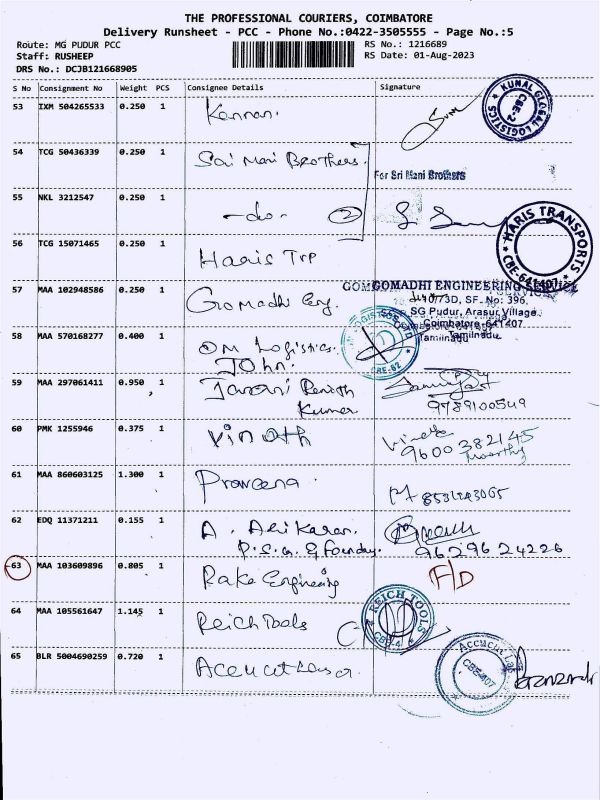 THE PROFESSIONAL COURIERS, COIMBATORE
Delivery Runsheet - PCC - Phone No.:0422-3505555 - Page No.:5
Route: MG PUDUR PCC RS No.: 1216689
Staff: RUSHEEP RS Date: 01-Aug-2023
DRS No.: DCJB121668905
S No Consignment No Weight PCS Consignee Details Signature
53 IXM 504265533 0.250 1 Kannan.
KUNAL GLOBAL LOGISTICS CBE-2
54 TCG 50436339 0.250 1 Sai Mani Brothers.
For Sri Mani Brothers
55 NKL 3212547 0.250 1 -do- 2
56 TCG 15071465 0.250 1 Haris Trp
HARIS TRANSPORTS CBE-641407
57 MAA 102948586 0.250 1 Gomadhi Eng.
GOMADHI ENGINEERING SERVICE
3D, SF. No: 396,
SG Pudur, Arasur Village,
Coimbatore 641407
Tamilnadu
58 MAA 570168277 0.400 1 OM Logistics.
John.
CBE-62
59 MAA 297061411 0.950 1
Kumar 9789100549
60 PMK 1255946 0.375 1 Vinoth
9600382145
Moorthy
61 MAA 860603125 1.300 1 Praveena.
62 EDQ 11371211 0.155 1 A.
P.S.G. & Foundry. 9629624226
63 MAA 103609896 0.805 1 Rake Engineering F/D
64 MAA 105561647 1.145 1 Reich Tools
REICH TOOLS CBE-4
65 BLR 5004690259 0.720 1